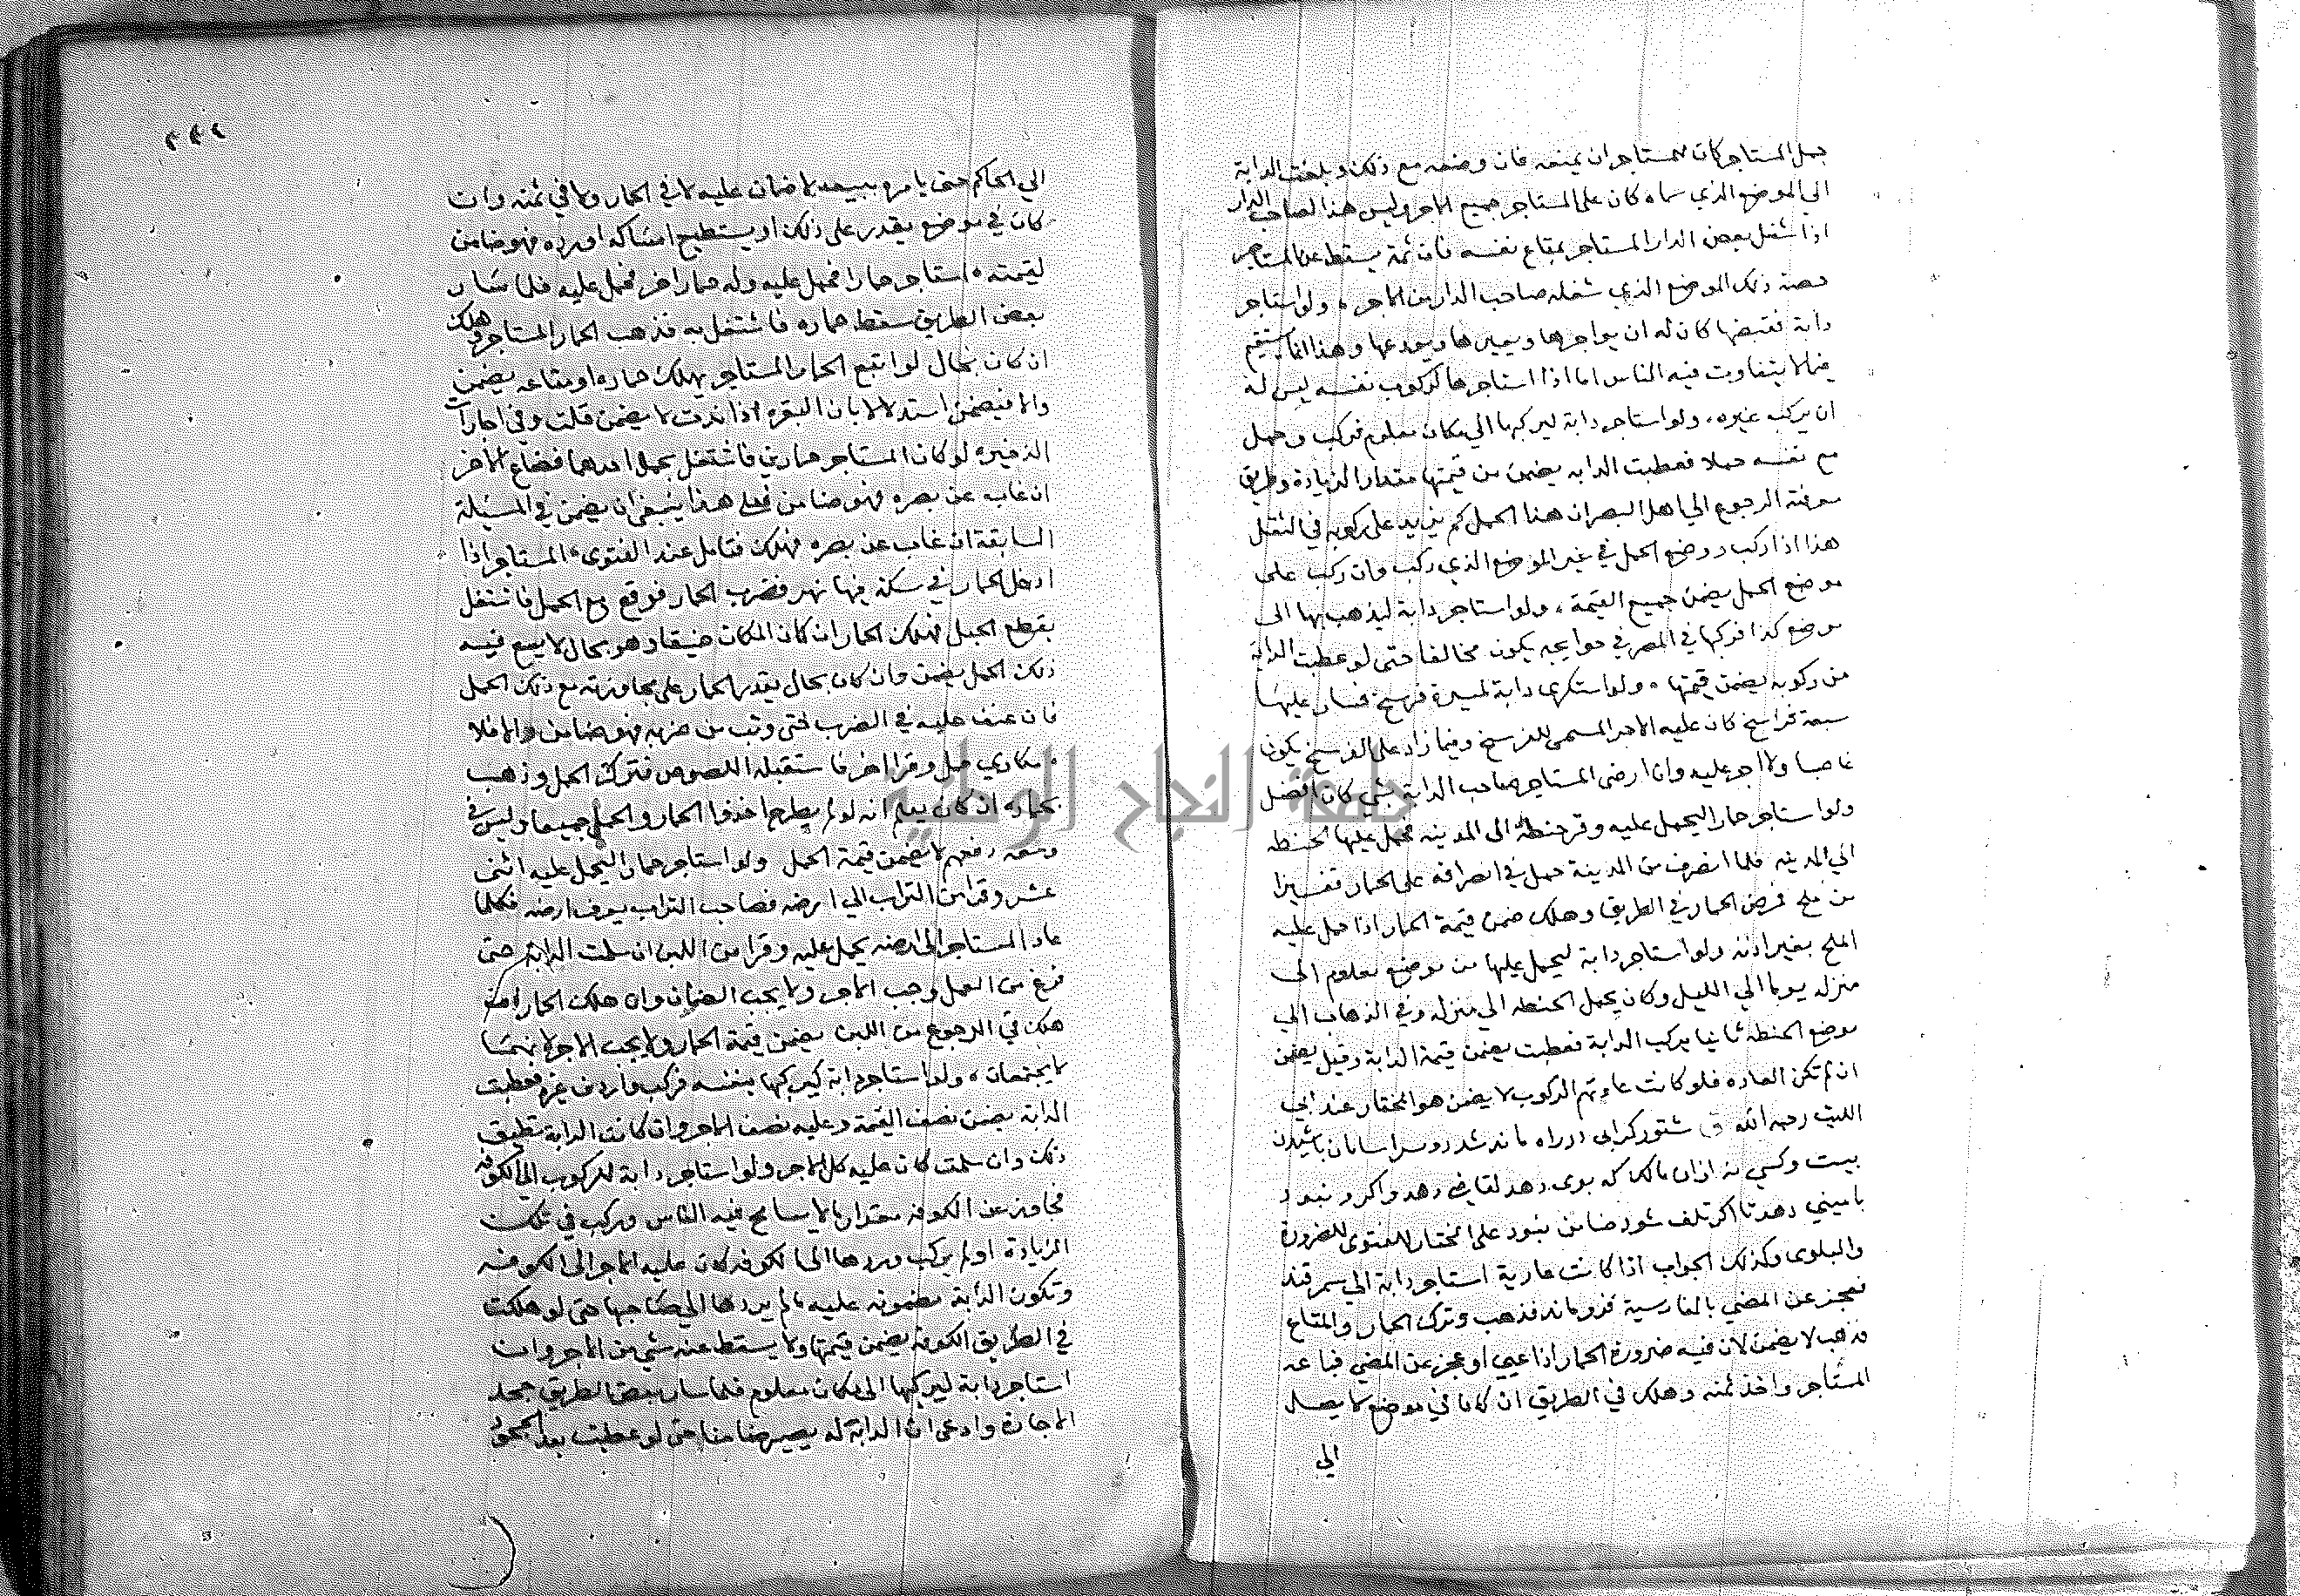 جمل المستاجر كان للمستاجر ان يمنعه فان وضعه مع ذلك وبلغت الدابة
الى الموضع الذي سماه كان على المستاجر جميع الاجر وليس هذا لصاحب الدار
اذا شغل بعض الدار المستاجر بمتاع نفسه فان ثمة يسقط عن المستاجر
حصة ذلك الموضع الذي شغله صاحب الدار من الاجر ، ولو استاجر
دابة فقبضها كان له ان يواجرها ويعيرها ويودعها وهذا انما يستقيم
فيما لا يتفاوت فيه الناس اما اذا استاجرها لركوب نفسه ليس له
ان يركب غيره ، ولو استاجر دابة ليركبها الي مكان معلوم فركب وحمل
مع نفسه حملا فعطبت الدابه يضمن من قيمتها مقدار الزيادة وطريق
معرفة الرجوع الي اهل البصر ان هذا الحمل كم يزيد على ركوبه في الثقل
هذا اذا ركب ووضع الحمل في غير الموضع الذي ركب وان ركب على
موضع الحمل يضمن جميع القيمة ، ولو استاجر دابة ليذهب بها الى
موضع كذا فركبها في المصر في حوايجه يكون مخالفا حتى لو عطبت الدابة
من ركوبه يضمن قيمتها ، ولو استكرى دابة لمسيرة فرسخ فسار عليها
سبعة فراسخ كان عليه الاجر المسمى للفرسخ وفيما زاد على الفرسخ يكون
غاصبا ولا اجر عليه وان ارضى المستاجر صاحب الدابة بشي كان افضل
ولو استاجر حمارا ليحمل عليه وقر حنطة الى المدينه فحمل عليها الحنطه
الي المدينه فلما انصرف من المدينة حمل في انصرافه على الحمار قفيزا
من ملح فمرض الحمار في الطريق وهلك ضمن قيمة الحمار اذا حمل عليه
الملح بغير اذنه ولو استاجر دابة ليحمل عليها من موضع معلوم الى
منزله يوما الي الليل وكان يحمل الحنطه الي منزله وفي الذهاب الي
موضع الحنطه ثانيا يركب الدابة فعطبت يضمن قيمة الدابة وقيل يضمن
ان لم تكن العاده فلو كانت عادتهم الركوب لا يضمن هو المختار عند ابي
الليث رحمه الله شتور كرابى در راه ماند شد
بيست وكسي نه ازان مالك كه بوى دهد
باميني دهد تا اكر تلف شود ضامن نبود على المختار للفتوى للضرورة
والبلوى وكذلك الجواب اذا كانت عارية استاجر دابة الي سمرقند
فعجز عن المضي بالفارسية فروماند فذهب وترك الحمار والمتاع
فذهب لا يضمن لان فيه ضرورة الحمار اذا عيي او عجز عن المضي فباعه
المستاجر واخذ ثمنه وهلك في الطريق ان كانا في موضع لا يصل
الي
الي الحاكم حتى يامره ببيعه لا ضمان عليه لا في الحمار ولا في ثمنه وان
كان في موضع يقدر على ذلك او يستطيع امساكه او رده فهو ضامن
لقيمته ، استاجر حمارا فحمل عليه وله حمار اخر فحمل عليه فلما سار
بعض الطريق سقط حماره فاشتغل به فذهب الحمار المستاجر وهلك
ان كان بحال لو اتبع الحمار المستاجر يهلك حماره او متاعه يضمن
والا فيضمن استدلالا بان البقره اذا ندت لا يضمن قلت وفي اجارات
الذخيره لو كان المستاجر حمارين فاشتغل بحمل احدهما فضاع الاخر
ان غاب عن بصره فهو ضامن فعلى هذا ينبغي ان يضمن في المسئلة
السابقة ان غاب عن بصره فهلك فتامل عند الفتوى ، المستاجر اذا
ادخل الحمار في سكة فيها نهر فضرب الحمار فوقع مع الحمل فاشتغل
بقطع الحبل فهلك الحمار ان كان المكان ضيقا وهو بحال لا يسع فيه
ذلك الحمل يضمن وان كان بحال يقدر الحمار على مجاوزته مع ذلك الحمل
فان عنف عليه في الضرب حتى وثب من ضربه فهو ضامن والا فلا
، مكاري حمل وقرا اخر فاستقبله اللصوص فترك الحمل وذهب
بحماره ان كان يعلم انه لو لم يطرح اخذوا الحمار والحمل جميعا وليس في
وسعه دفعهم لا يضمن قيمة الحمل ولو استاجر حمارا ليحمل عليه اثنى
عشر وقرا من التراب الي ارضه فصاحب التراب يعرف ارضه فكلما
عاد المستاجر الى ارضه يحمل عليه وقرا من اللبن ان سلمت الدابة حتى
فرغ من العمل وجب الاجر ولا يجب الضمان وان هلك الحمار
هلك في الرجوع من اللبن يضمن قيمة الحمار ولا يجب الاجر لانهما
لا يجتمعان ، ولو استاجر دابة ليركبها بنفسه فركب واردف غيره فعطبت
الدابة يضمن نصف القيمة وعليه نصف الاجر وان كانت الدابة تطيق
ذلك وان سلمت كان عليه كل الاجر ولو استاجر دابة للركوب الي الكوفه
فجاوز عن الكوفه مقدار ما لا يسامح فيه الناس وركب في تلك
الزيادة او لم يركب وردها الى الكوفه كان عليه الاجر الى الكوفه
وتكون الدابة مضمونه عليه ما لم يردها الي صاحبها حتى لو هلكت
في الطريق الكوفه يضمن قيمتها ولا يسقط عنه شي من الاجر وان
استاجر دابة ليركبها الى مكان معلوم فلما سار ببعض الطريق جحد
الاجارة وادعى ان الدابة له يصير ضامنا حتى لو عطبت بعد الجحود
جامعة النجاح الوطنية